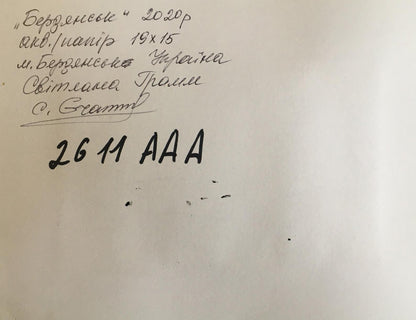 „Бердянськ" 2020р
акв./папір 19х15
м. Бердянськ Україна
Світлана Грамм
С. Грамм
2611 ААА